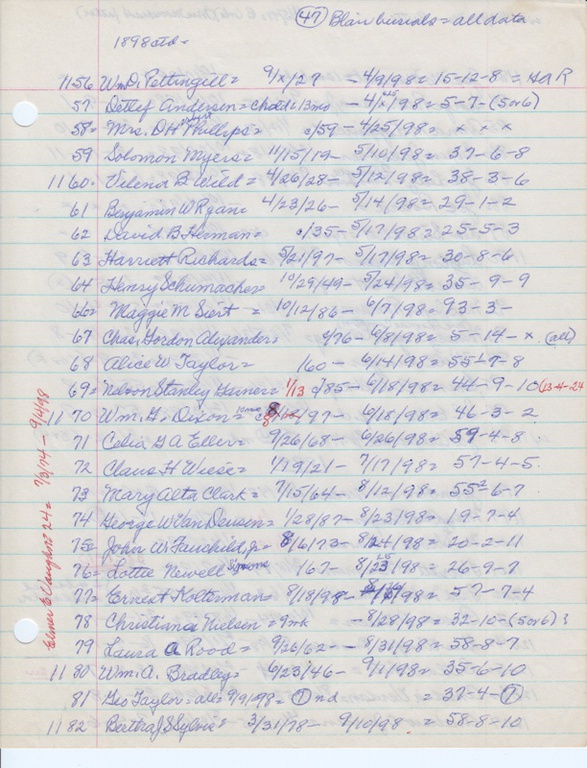 (47) Blair burials = all data
1898 ctd =
1156 Wm D. Pettingill = 9/x/27 - 4/9/98 = 15-12-8 = HAR
57 Detlef Andersen = child = 13 mo - 4/x/98 = 5-7-(5 or 6)
58 = Mrs. DH Phillips = c/59 - 4/25/98 = x x x
59 Solomon Myers = 11/15/19 - 5/10/98 = 37-6-8
1160. Velena B. Wild = 4/26/28 - 5/12/98 = 38-3-6
61 Benjamin W Ryan = 4/23/26 - 5/14/98 = 29-1-2
62 David B Herman = c/35 - 5/17/98 = 25-5-3
63 Harriett Richards = 5/21/97 - 5/17/98 = 30-8-6
64 Henry Schumacher = 10/29/49 - 5/24/98 = 35-9-9
66 = Maggie M Siert = 10/12/86 - 6/7/98 = 93-3-
67 Chas. Gordon Alexander = c/76 - 6/8/98 = 5-14-x (all)
68 Alice W Taylor = /60 - 6/14/98 = 55-7-8
69 = Nelson Stanley Garner = 1/13 c/85 - 6/18/98 = 44-9-10 (13-4-24
1170 Wm. G. Dixon = 10 mo 8 /97 - 6/18/98 = 46-3-2
71 Celia G A Eller = 9/26/68 - 6/26/98 = 59-4-8
72 Claus H Wiese = 1/19/21 - 7/17/98 = 57-4-5.
73 Mary Alta Clark = 7/15/64 - 8/12/98 = 55-6-7
74 George W Van Deusen = 1/28/87 - 8/23/98 = 19-7-4
75 = John W. Fauchild, Jr = 8/6/73 - 8/24/98 = 20-2-11
76 = Lottie Newell /67 - 8/25/98 = 26-9-7
77 = Ernest Kolterman = 8/18/98 - = 57-7-4
78 Christiana Nielsen = 9 mk - 8/28/98 = 32-10-(5 or 6)?
79 Laura A Rood = 9/26/62 - 8/31/98 = 58-8-7
1180 Wm. A. Bradley = 6/23/46 - 9/1/98 = 35-6-10
81 Geo Taylor = all = 9/9/98 = (7) nd = 37-4-(7)
1182 Bertha J S Sylvis = 3/31/78 - 9/10/98 = 58-8-10
Elmer E Vaughn 24 = 7/3/74 - 9/14/98